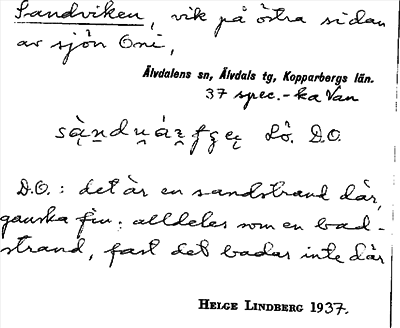 Sandviken, vik på östra sidan
av sjön Oni,
Älvdalens sn, Älvdals tg, Kopparbergs län.
37 spec.-ka Van
Lö. D.O.
D.O.: det är en sandstrand där,
ganska fin: alldeles som en bad-
strand, fast det badar inte där
HELGE LINDBERG 1937.